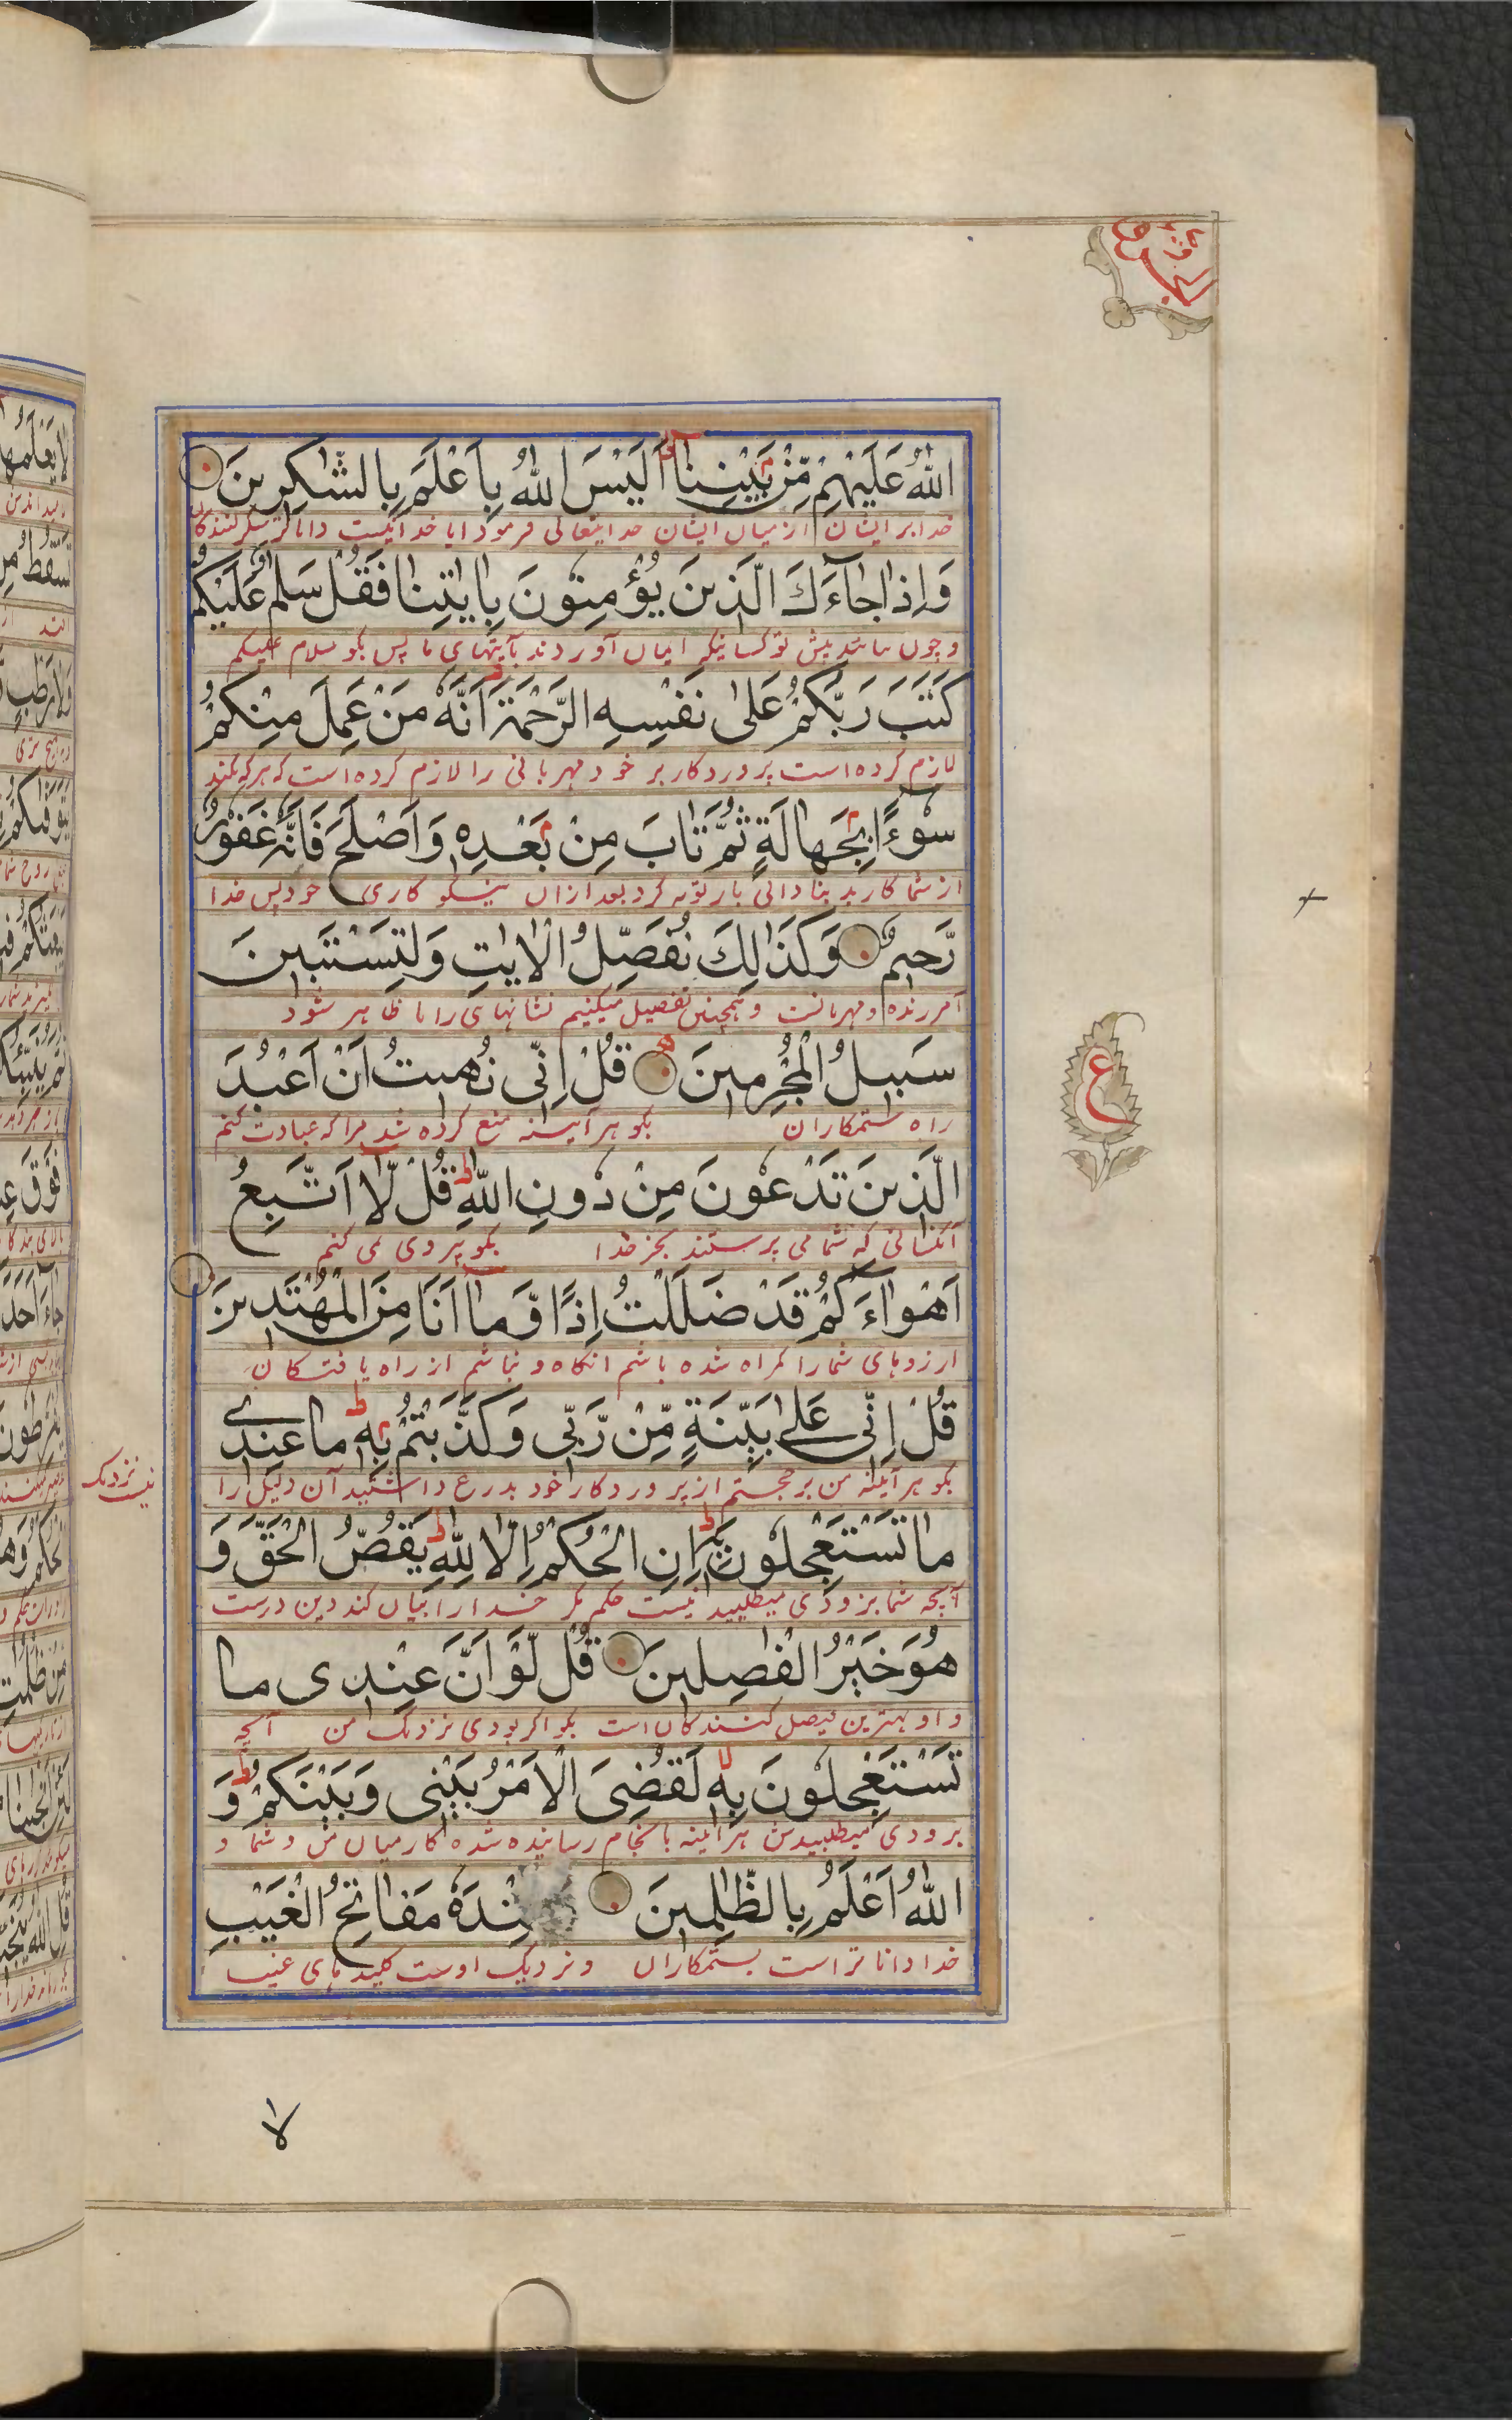 اللهُ عَلَيْهِمْ مِّنْ بَيْنِنَا اَلَيْسَ اللهُ بِاَعْلَمَ بِالشّٰكِرِينَ
خدا بر ایشان از میان ایشان خدایتعالی فرمود ایا خدا نیست داناتر بشکر کنندکان
وَاِذَا جَآءَكَ الَّذِينَ يُؤْمِنُونَ بِاٰيٰتِنَا فَقُلْ سَلٰمٌ عَلَيْكُمْ
و چون بیایند پیش تو کسانیکه ایمان آوردند بآیتهای ما پس بکو سلام علیکم
كَتَبَ رَبُّكُمْ عَلٰى نَفْسِهِ الرَّحْمَةَ اَنَّهٗ مَنْ عَمِلَ مِنْكُمْ
لازم کرده است پروردکار بر خود مهربانی را لازم کرده است که هر که بکند
سُوْٓءًا بِجَهَالَةٍ ثُمَّ تَابَ مِنْ بَعْدِهٖ وَاَصْلَحَ فَاَنَّهٗ غَفُوْرٌ
از شما کار بد بنادانی باز توبه کرد بعد ازان نیکو کاری خود پس خدا
رَّحِيمٌ وَكَذٰلِكَ نُفَصِّلُ الْاٰيٰتِ وَلِتَسْتَبِينَ
آمرزنده و مهربانست و همچنین تفصیل میکنیم نشانهای را تا ظاهر شود
سَبِيلُ الْمُجْرِمِينَ قُلْ اِنِّى نُهِيتُ اَنْ اَعْبُدَ
راه ستمکاران بکو هر آیینه منع کرده شد مرا که عبادت کنم
الَّذِينَ تَدْعُوْنَ مِنْ دُونِ اللهِ قُلْ لَّا اَتَّبِعُ
آنکسانی که شما می پرستند بجز خدا بکو پیروی نمی کنم
اَهْوَاءَكُمْ قَدْ ضَلَلْتُ اِذًا وَّمَا اَنَا مِنَ الْمُهْتَدِينَ
ارزوهای شما را کمراه شده باشم انکاه و نباشم از راه یافتکان
قُلْ اِنِّى عَلٰے بَيِّنَةٍ مِّنْ رَّبِّى وَكَذَّبْتُمْ بِهٖ مَا عِنْدِے
بکو هر آیینه من بر حجتم از پروردکار خود بدروغ داشتید آن دلیل را
نیست نزدیک
مَا تَسْتَعْجِلُونَ بِهٖ اِنِ الْحُكْمُ اِلَّا لِلّٰهِ يَقُصُّ الْحَقَّ وَ
آنچه شما بزودی میطلبید نیست حکم مکر خدا را بیان کند دین درست
هُوَ خَيْرُ الْفٰصِلِينَ قُلْ لَّوْ اَنَّ عِنْدِى مَا
و او بهترین فیصل کنندکان است بکو اکر بودی نزدیک من آنچه
تَسْتَعْجِلُونَ بِهٖ لَقُضِىَ الْاَمْرُ بَيْنِى وَبَيْنَكُمْ وَ
بزودی میطلبیدش هر آیینه بانجام رسانیده شده کار میان من و شما و
اللهُ اَعْلَمُ بِالظّٰلِمِينَ نْدَهٗ مَفَاتِحُ الْغَيْبِ
خدا دانا تر است بستمکاران و نزدیک اوست کلیدهای غیب
ع
لا